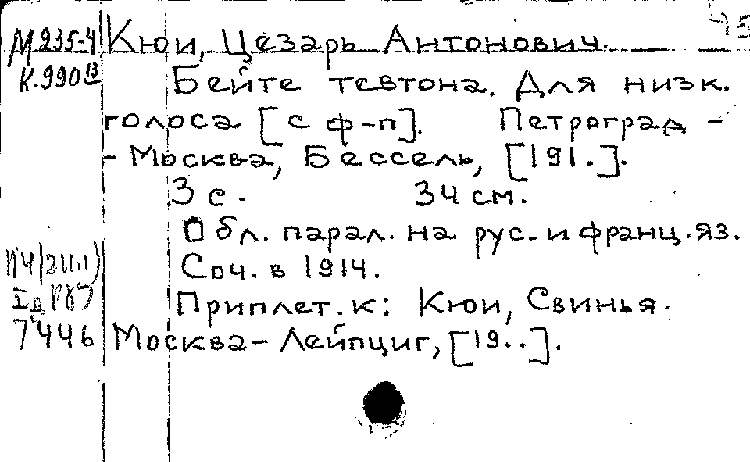 М 235-4 Кюи, Цезарь Антонович.
К.990 Бейте тевтона. Для низк.
голоса [с ф-п]. Петроград -
- Москва, Бессель, [191.].
3 с. 34 см.
Обл. парал. на рус. и франц. яз.
Соч. в 1914.
Приплет. к: Кюи, Свинья.
7446 Москва - Лейпциг, [19..].